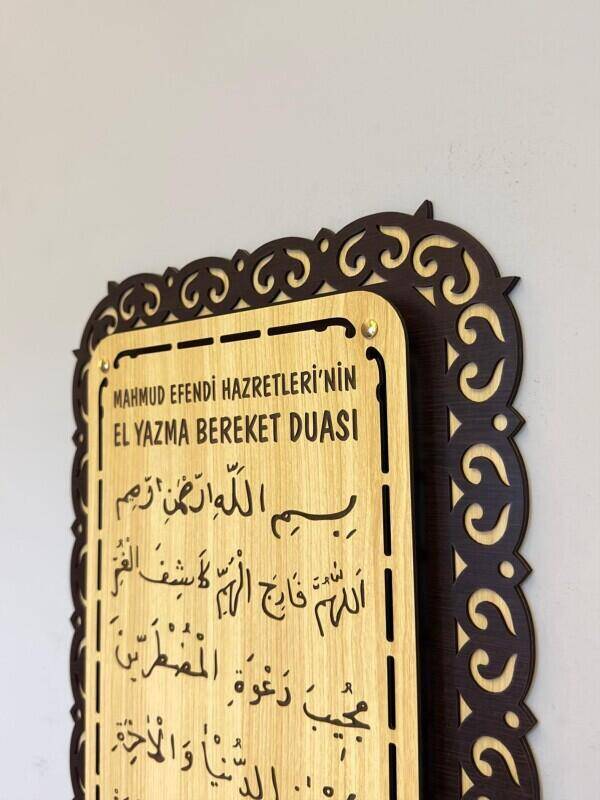 MAHMUD EFENDİ HAZRETLERİ'NİN
EL YAZMA BEREKET DUASI
بِسْمِ اللَّهِ الرَّحْمٰنِ الرَّحِيمِ
اَللّٰهُمَّ فَارِجَ الْهَمِّ كَاشِفَ الْغَمِّ
مُجِيبَ دَعْوَةِ الْمُضْطَرِّينَ
الدُّنْيَا وَالْاٰخِرَةِ